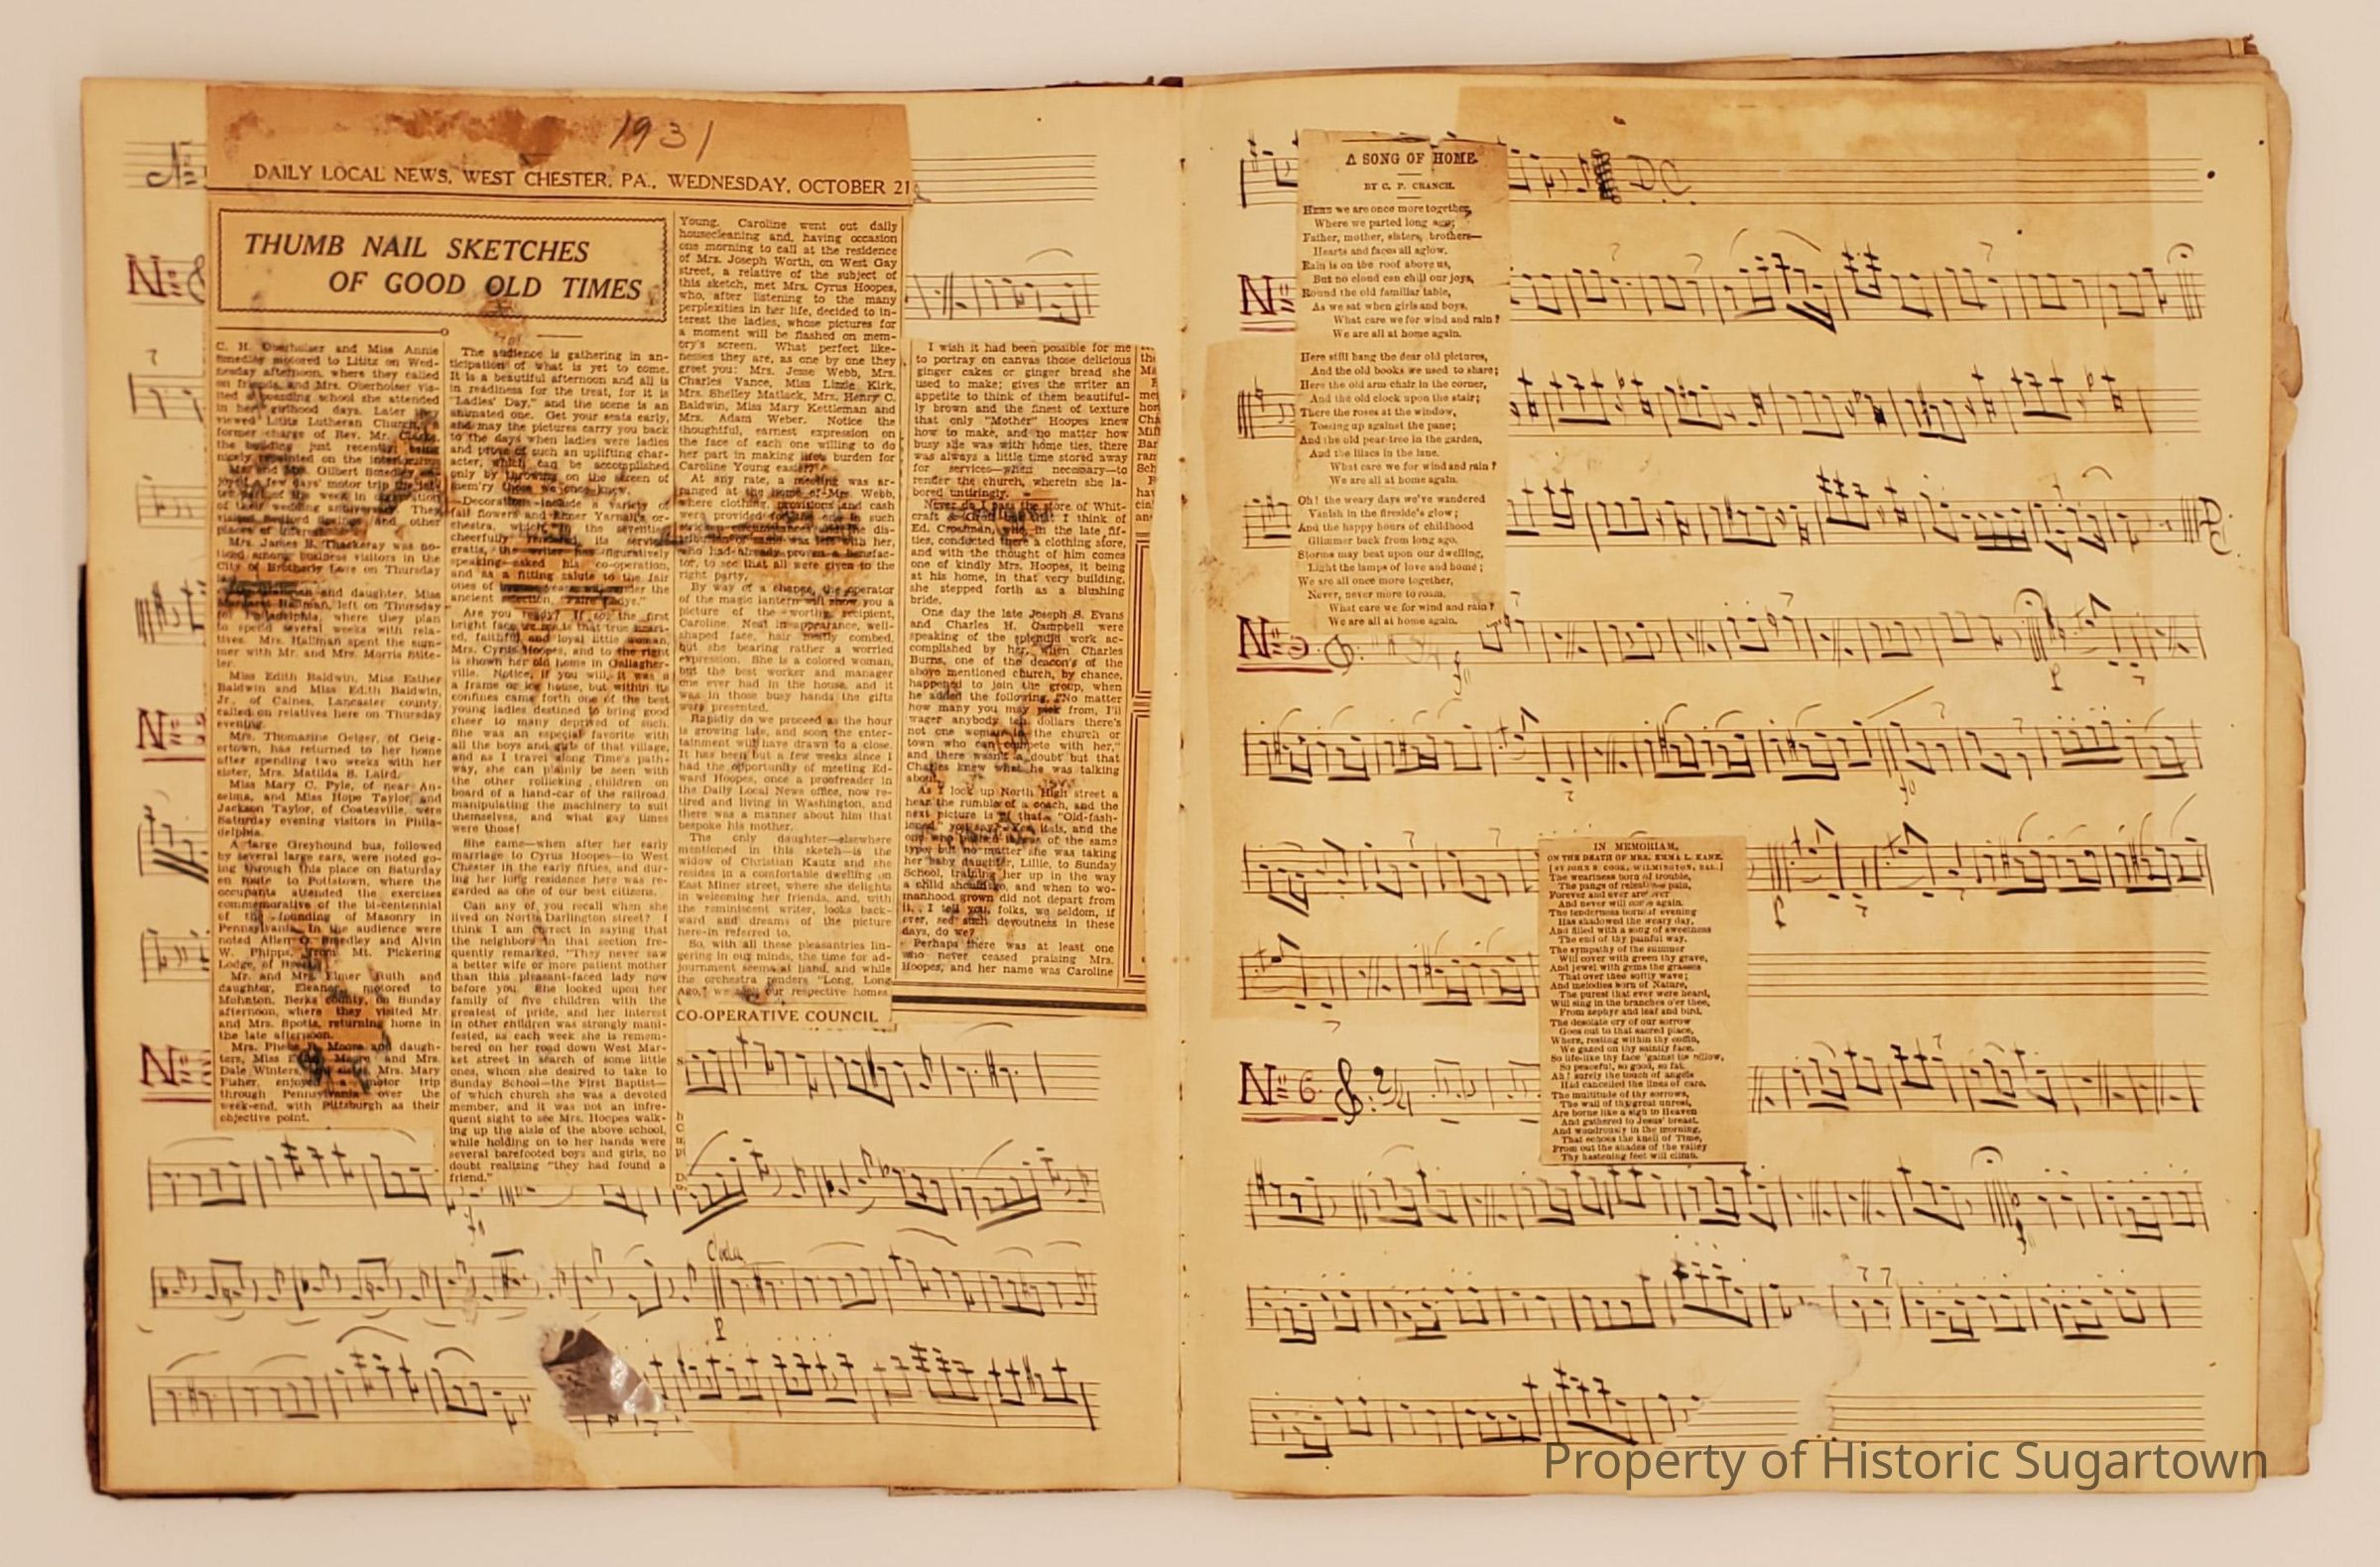 1931
DAILY LOCAL NEWS, WEST CHESTER, PA., WEDNESDAY, OCTOBER 21
THUMB NAIL SKETCHES
OF GOOD OLD TIMES
C. H. Oberholser and Miss Annie
Smedley motored to Lititz on Wed-
nesday afternoon, where they called
on friends, and Mrs. Oberholser vis-
ited a boarding school she attended
in her girlhood days. Later they
viewed Lititz Lutheran Church, a
former charge of Rev. Mr.
the building just recently being
nicely repainted on the
Mr. and Mrs. Gilbert Smedley
a few days' motor trip the
part of the week in
of their wedding anniversary. They
visited Bedford Springs and other
places of interest.
Mrs. James B. Thackeray was no-
ticed among business visitors in the
City of Brotherly Love on Thursday
and daughter, Miss
left on Thursday
for Philadelphia, where they plan
to spend several weeks with rela-
tives. Mrs. Hallman spent the sum-
mer with Mr. and Mrs. Morris Stite-
ler.
Miss Edith Baldwin, Miss Esther
Baldwin and Miss Edith Baldwin,
Jr., of Caines, Lancaster county,
called on relatives here on Thursday
evening.
Mrs. Thomazine Geiger, of Geig-
ertown, has returned to her home
after spending two weeks with her
sister, Mrs. Matilda S. Laird.
Miss Mary C. Pyle, of near An-
selma, and Miss Hope Taylor and
Jackson Taylor, of Coatesville, were
Saturday evening visitors in Phila-
delphia.
A large Greyhound bus, followed
by several large cars, were noted go-
ing through this place on Saturday
en route to Pottstown, where the
occupants attended the exercises
commemorative of the bi-centennial
of the founding of Masonry in
Pennsylvania. In the audience were
noted Allen O. Smedley and Alvin
W. Phipps, from Mt. Pickering
Lodge, of
Mr. and Mrs. Elmer Ruth and
daughter, Eleanor, motored to
Mohnton, Berks county, on Sunday
afternoon, where they visited Mr.
and Mrs. Spotts, returning home in
the late afternoon.
Mrs. Phebe Moore and daugh-
ters, Miss Moore and Mrs.
Dale Winters, Mrs. Mary
Fisher, enjoyed a motor trip
through Pennsylvania over the
week-end, with Pittsburgh as their
objective point.
The audience is gathering in an-
ticipation of what is yet to come.
It is a beautiful afternoon and all is
in readiness for the treat, for it is
"Ladies' Day," and the scene is an
animated one. Get your seats early,
and may the pictures carry you back
to the days when ladies were ladies
and prove of such an uplifting char-
acter, which can be accomplished
only by throwing on the screen of
mem'ry those we once knew.
Decorations include a variety of
fall flowers and Abner Yarnall's or-
chestra, which in the seventies
cheerfully rendered its service
gratis, the writer has figuratively
speaking asked his co-operation,
and as a fitting salute to the fair
ones of years render the
ancient selection, "Faire Ladye."
Are you ready? If so, the first
bright face we see is that true heart-
ed, faithful and loyal little woman,
Mrs. Cyrus Hoopes, and to the right
is shown her old home in Gallagher-
ville. Notice, if you will, it was a
a frame or log house, but within its
confines came forth one of the best
young ladies destined to bring good
cheer to many deprived of such.
She was an especial favorite with
all the boys and girls of that village,
and as I travel along Time's path-
way, she can plainly be seen with
the other rollicking children on
board of a hand-car of the railroad,
manipulating the machinery to suit
themselves, and what gay times
were those!
She came—when after her early
marriage to Cyrus Hoopes—to West
Chester in the early fifties, and dur-
ing her long residence here was re-
garded as one of our best citizens.
Can any of you recall when she
lived on North Darlington street? I
think I am correct in saying that
the neighbors in that section fre-
quently remarked, "They never saw
a better wife or more patient mother
than this pleasant-faced lady now
before you. She looked upon her
family of five children with the
greatest of pride, and her interest
in other children was strongly mani-
fested, as each week she is remem-
bered on her road down West Mar-
ket street in search of some little
ones, whom she desired to take to
Sunday School—the First Baptist—
of which church she was a devoted
member, and it was not an infre-
quent sight to see Mrs. Hoopes walk-
ing up the aisle of the above school,
while holding on to her hands were
several barefooted boys and girls, no
doubt realizing "they had found a
friend."
I wish it had been possible for me
to portray on canvas those delicious
ginger cakes or ginger bread she
used to make; gives the writer an
appetite to think of them beautiful-
ly brown and the finest of texture
that only "Mother" Hoopes knew
how to make, and no matter how
busy she was with home ties, there
was always a little time stored away
for services—when necessary—to
render the church, wherein she la-
bored untiringly.
Never do I pass the store of Whit-
craft that I think of
Ed. Crossman, who in the late fif-
ties, conducted there a clothing store,
and with the thought of him comes
one of kindly Mrs. Hoopes, it being
at his home, in that very building,
she stepped forth as a blushing
bride.
One day the late Joseph S. Evans
and Charles H. Campbell were
speaking of the splendid work ac-
complished by her, when Charles
Burns, one of the deacon's of the
above mentioned church, by chance,
happened to join the group, when
he added the following, "No matter
how many you may pick from, I'll
wager anybody ten dollars there's
not one woman in the church or
town who can compete with her,"
and there wasn't a doubt but that
Charles knew what he was talking
about.
As I look up North High street a
hear the rumble of a coach, and the
next picture is of that. "Old-fash-
ioned," you say? Yes, itals, and the
one who pushed it was of the same
type, but no matter she was taking
her baby daughter, Lillie, to Sunday
School, training her up in the way
a child should go, and when to wo-
manhood grown did not depart from
it. I tell you, folks, we seldom, if
ever, see such devoutness in these
days, do we?
Perhaps there was at least one
who never ceased praising Mrs.
Hoopes, and her name was Caroline
Young. Caroline went out daily
housecleaning and, having occasion
one morning to call at the residence
of Mrs. Joseph Worth, on West Gay
street, a relative of the subject of
this sketch, met Mrs. Cyrus Hoopes,
who, after listening to the many
perplexities in her life, decided to in-
terest the ladies, whose pictures for
a moment will be flashed on mem-
ory's screen. What perfect like-
nesses they are, as one by one they
greet you: Mrs. Jesse Webb, Mrs.
Charles Vance, Miss Lizzie Kirk,
Mrs. Shelley Matlack, Mrs. Henry C.
Baldwin, Miss Mary Kettleman and
Mrs. Adam Weber. Notice the
thoughtful, earnest expression on
the face of each one willing to do
her part in making life's burden for
Caroline Young easier?
At any rate, a meeting was ar-
ranged at the home of Mrs. Webb,
where clothing, provisions and cash
were provided for the one in such
circumstances the dis-
tribution of same was left with her,
who had already proven a benefac-
tor, to see that all were given to the
right party.
By way of a change, the operator
of the magic lantern will show you a
picture of the worthy recipient,
Caroline. Neat in appearance, well-
shaped face, hair neatly combed,
but she bearing rather a worried
expression. She is a colored woman,
but the best worker and manager
one ever had in the house, and it
was in those busy hands the gifts
were presented.
Rapidly do we proceed as the hour
is growing late, and soon the enter-
tainment will have drawn to a close.
It has been but a few weeks since I
had the opportunity of meeting Ed-
ward Hoopes, once a proofreader in
the Daily Local News office, now re-
tired and living in Washington, and
there was a manner about him that
bespoke his mother.
The only daughter—elsewhere
mentioned in this sketch—is the
widow of Christian Kautz and she
resides in a comfortable dwelling on
East Miner street, where she delights
in welcoming her friends, and, with
the reminiscent writer, looks back-
ward and dreams of the picture
here-in referred to.
So, with all these pleasantries lin-
gering in our minds, the time for ad-
journment seems at hand, and while
the orchestra renders "Long, Long
Ago," we seek our respective homes.
CO-OPERATIVE COUNCIL
Coda
D.C.
A SONG OF HOME.
BY C. P. CRANCH.
HERE we are once more together,
Where we parted long ago;
Father, mother, sisters, brothers—
Hearts and faces all aglow.
Rain is on the roof above us,
But no cloud can chill our joys,
Round the old familiar table,
As we sat when girls and boys.
What care we for wind and rain?
We are all at home again.
Here still hang the dear old pictures,
And the old books we used to share;
Here the old arm chair in the corner,
And the old clock upon the stair;
There the roses at the window,
Tossing up against the pane;
And the old pear-tree in the garden,
And the lilacs in the lane.
What care we for wind and rain?
We are all at home again.
Oh! the weary days we've wandered
Vanish in the fireside's glow;
And the happy hours of childhood
Glimmer back from long ago.
Storms may beat upon our dwelling,
Light the lamps of love and home;
We are all once more together,
Never, never more to roam.
What care we for wind and rain?
We are all at home again.
No 5
IN MEMORIAM.
ON THE DEATH OF MRS. EMMA L. KANE.
[BY JOHN B. COOK, WILMINGTON, DEL.]
The weariness born of trouble,
The pangs of relentless pain,
Forever and ever are over
And never will come again.
The tenderness born of evening
Has shadowed the weary day,
And filled with a song of sweetness
The end of thy painful way.
The sympathy of the summer
Will cover with green thy grave,
And jewel with gems the grasses
That over thee softly wave;
And melodies born of Nature,
The purest that ever were heard,
Will sing in the branches o'er thee,
From zephyr and leaf and bird.
The desolate cry of our sorrow
Goes out to that sacred place,
Where, resting within thy coffin,
We gazed on thy saintly face.
So life-like thy face 'gainst the pillow,
So peaceful, so good, so fair.
Ah! surely the touch of angels
Had cancelled the lines of care.
The multitude of thy sorrows,
The wail of thy great unrest,
Are borne like a sigh to Heaven
And gathered to Jesus' breast.
And wondrously in the morning,
That echoes the knell of Time,
From out the shades of the valley
Thy hastening feet will climb.
No 6.
Property of Historic Sugartown